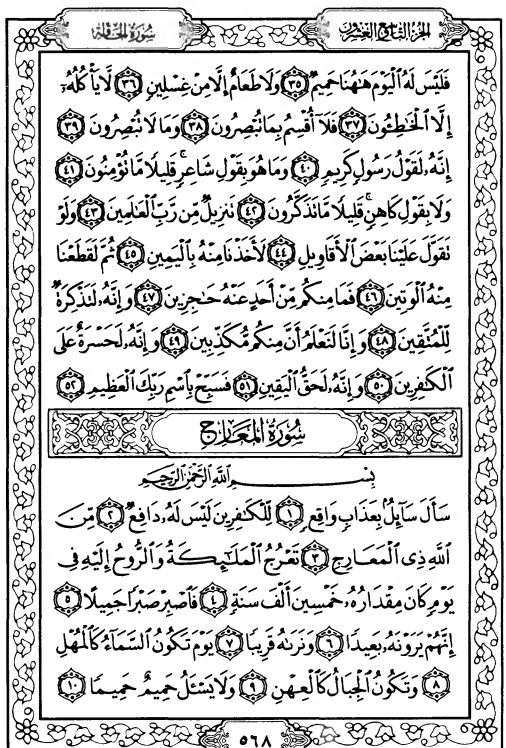 سُورَةُ الْحَاقَّةِ
الجُزْءُ التَّاسِعُ وَالعِشْرُونَ
فَلَيْسَ لَهُ ٱلْيَوْمَ هَٰهُنَا حَمِيمٌ ٣٥ وَلَا طَعَامٌ إِلَّا مِنْ غِسْلِينٍ ٣٦ لَّا يَأْكُلُهُۥٓ
إِلَّا ٱلْخَٰطِـُٔونَ ٣٧ فَلَآ أُقْسِمُ بِمَا تُبْصِرُونَ ٣٨ وَمَا لَا تُبْصِرُونَ ٣٩
إِنَّهُۥ لَقَوْلُ رَسُولٍ كَرِيمٍ ٤٠ وَمَا هُوَ بِقَوْلِ شَاعِرٍ ۚ قَلِيلًا مَّا تُؤْمِنُونَ ٤١
وَلَا بِقَوْلِ كَاهِنٍ ۚ قَلِيلًا مَّا تَذَكَّرُونَ ٤٢ تَنزِيلٌ مِّن رَّبِّ ٱلْعَٰلَمِينَ ٤٣ وَلَوْ
تَقَوَّلَ عَلَيْنَا بَعْضَ ٱلْأَقَاوِيلِ ٤٤ لَأَخَذْنَا مِنْهُ بِٱلْيَمِينِ ٤٥ ثُمَّ لَقَطَعْنَا
مِنْهُ ٱلْوَتِينَ ٤٦ فَمَا مِنكُم مِّنْ أَحَدٍ عَنْهُ حَٰجِزِينَ ٤٧ وَإِنَّهُۥ لَتَذْكِرَةٌ
لِّلْمُتَّقِينَ ٤٨ وَإِنَّا لَنَعْلَمُ أَنَّ مِنكُم مُّكَذِّبِينَ ٤٩ وَإِنَّهُۥ لَحَسْرَةٌ عَلَى
ٱلْكَٰفِرِينَ ٥٠ وَإِنَّهُۥ لَحَقُّ ٱلْيَقِينِ ٥١ فَسَبِّحْ بِٱسْمِ رَبِّكَ ٱلْعَظِيمِ ٥٢
سُورَةُ الْمَعَارِجِ
بِسْمِ ٱللَّهِ ٱلرَّحْمَٰنِ ٱلرَّحِيمِ
سَأَلَ سَآئِلٌۢ بِعَذَابٍ وَاقِعٍ ١ لِّلْكَٰفِرِينَ لَيْسَ لَهُۥ دَافِعٌ ٢ مِّنَ
ٱللَّهِ ذِى ٱلْمَعَارِجِ ٣ تَعْرُجُ ٱلْمَلَٰٓئِكَةُ وَٱلرُّوحُ إِلَيْهِ فِى
يَوْمٍ كَانَ مِقْدَارُهُۥ خَمْسِينَ أَلْفَ سَنَةٍ ٤ فَٱصْبِرْ صَبْرًا جَمِيلًا ٥
إِنَّهُمْ يَرَوْنَهُۥ بَعِيدًا ٦ وَنَرَىٰهُ قَرِيبًا ٧ يَوْمَ تَكُونُ ٱلسَّمَآءُ كَٱلْمُهْلِ
٨ وَتَكُونُ ٱلْجِبَالُ كَٱلْعِهْنِ ٩ وَلَا يَسْـَٔلُ حَمِيمٌ حَمِيمًا ١٠
٥٦٨